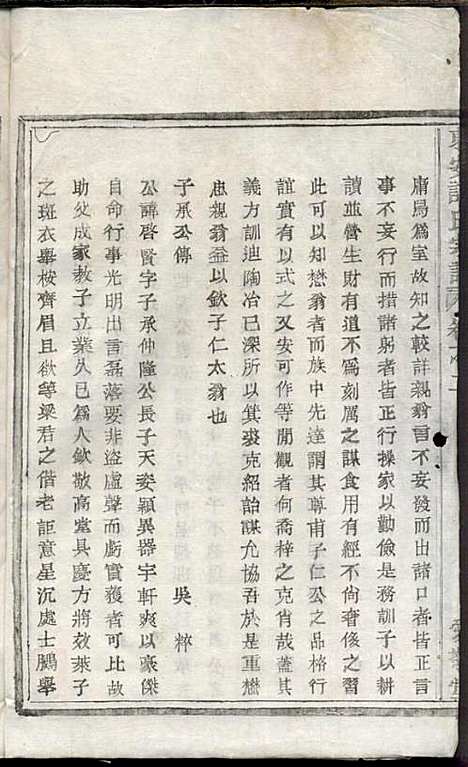 庸鳥爲室故知之較詳親翁言不妄發而出諸口者皆正言
事不妄行而措諸躬者皆正行操家以勤儉是務訓子以耕
讀並營生財有道不爲刻厲之謀食用有經不尙奢之習
此可以知懋翁者而族中先達謂其尊甫子仁公之品格行
誼實有以式之又安可作等閒觀者何喬梓之克肖哉蓋其
義方訓迪陶冶已深所以箕裘克紹詒謀允協吾於是重懋
忠親翁益以欽子仁太翁也
子承公傳　吳粹
公諱啓賢字子承仲隆公長子天姿穎異器宇軒爽以豪傑
自命行事光明出言磊落要非盜虛聲而虧實獲者可比故
助父成家敎子立業久已爲人欽敬高堂具慶方將效萊子
之斑衣舉桉齊眉且欲等梁君之偕老詎意星沉處士鵬舉